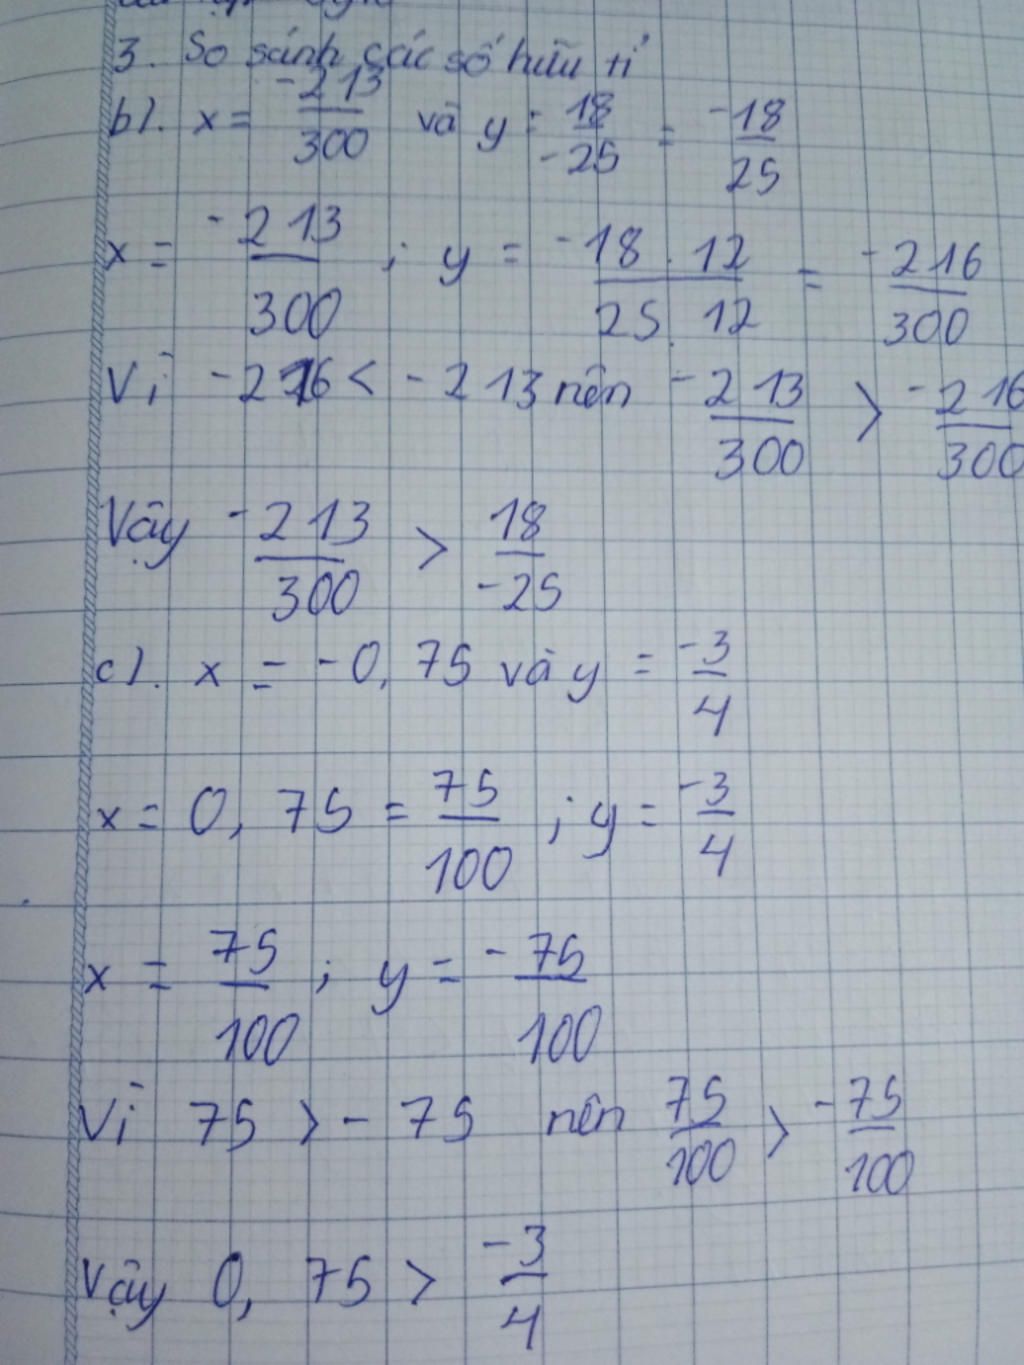 3. So sánh các số hữu tỉ
b). x = -213/300 và y = 18/-25 = -18/25
x = -213/300 ; y = -18.12/25.12 = -216/300
Vì -216 < -213 nên -213/300 > -216/300
Vậy -213/300 > 18/-25
c). x = -0,75 và y = -3/4
x = 0,75 = 75/100 ; y = -3/4
x = 75/100 ; y = -75/100
Vì 75 > -75 nên 75/100 > -75/100
Vậy 0,75 > -3/4